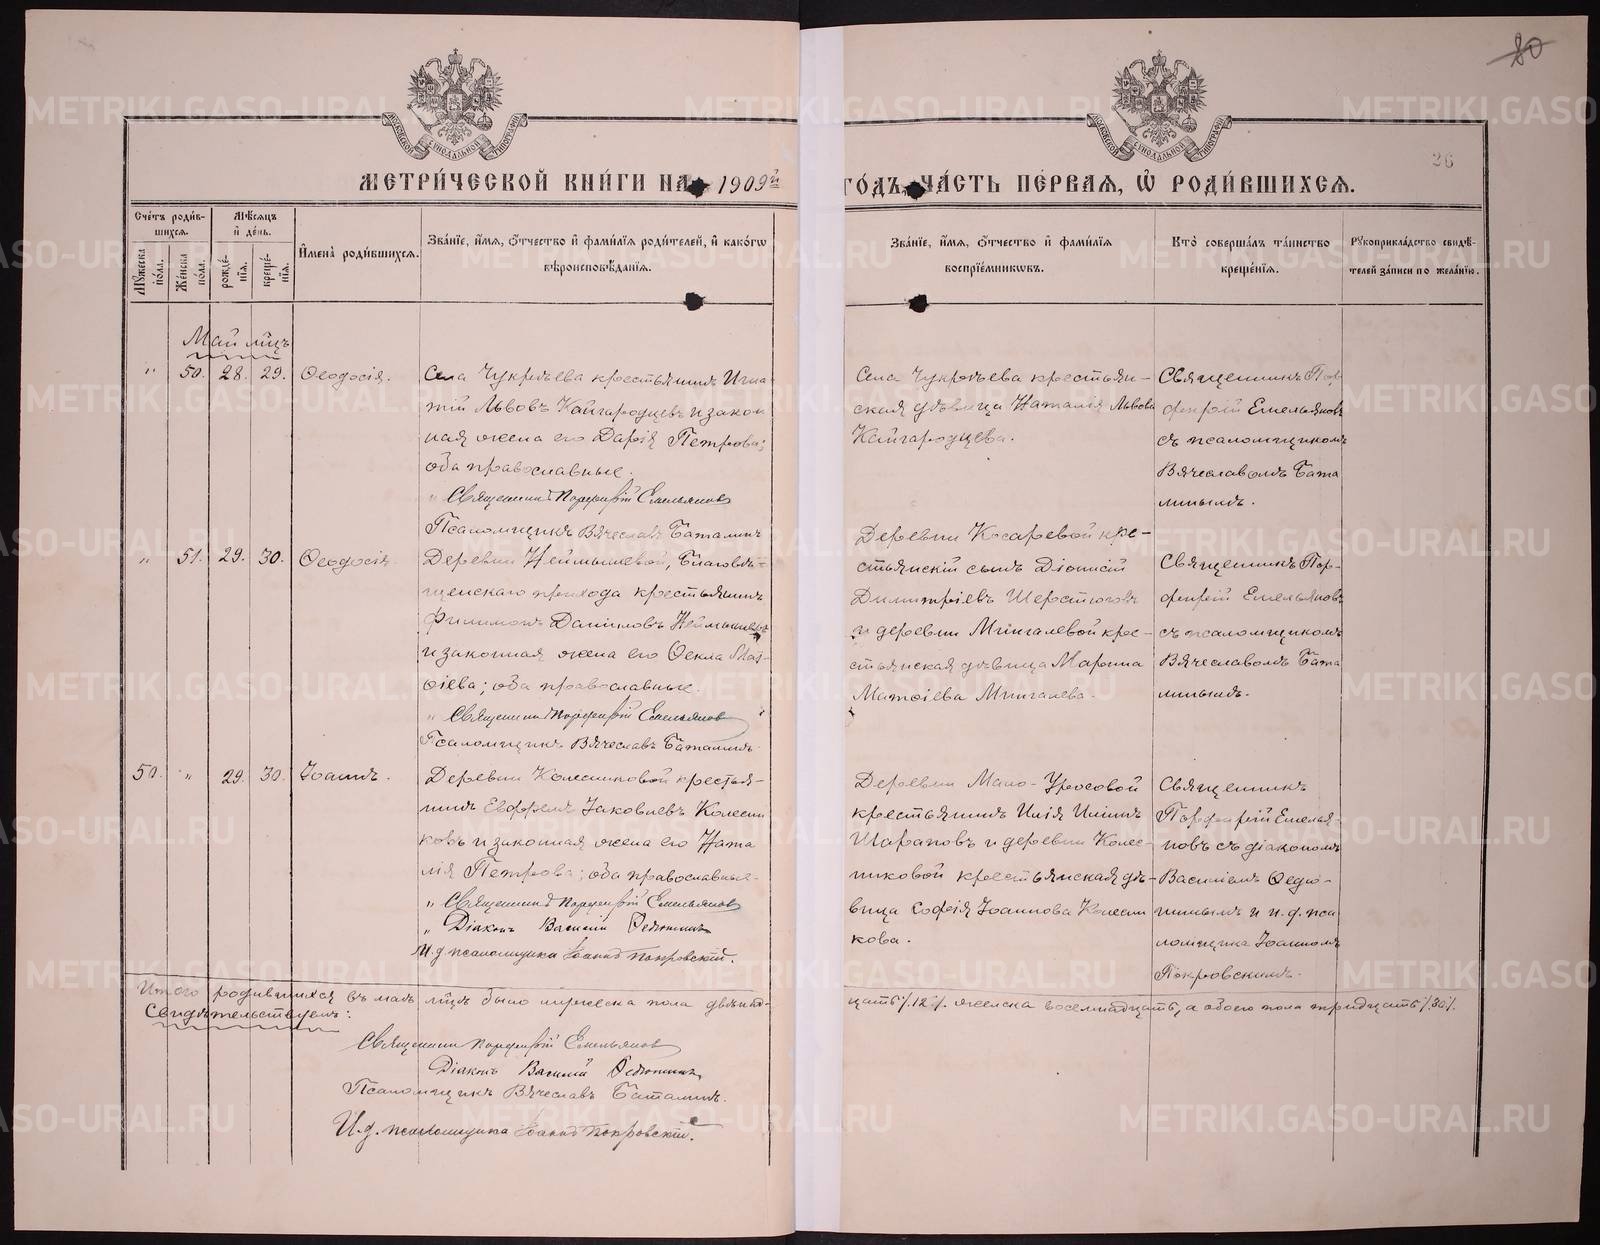 80
26
МЕТРИ́ЧЕСКОЙ КНИ́ГИ НА 1909й
ГО́ДЪ, ЧА́СТЬ ПЕ́РВАЯ, Ѡ҆ РОДИ́ВШИХСЯ.
МОСКОВСКОЙ СѴНОДАЛЬНОЙ ТИПОГРАФІИ
МОСКОВСКОЙ СѴНОДАЛЬНОЙ ТИПОГРАФІИ
Сче́тъ роди́вшихся.
Му́жеска по́ла.
Же́нска по́ла.
Мѣ́сяцъ и҆ де́нь.
рожде́нїя.
креще́нїя.
И҆мена̀ роди́вшихся.
Зва́нїе, и҆́мя, ѻ҆́тчество и҆ фами́лїя роди́телей, и҆ како́гѡ
вѣроисповѣ́данїя.
Зва́нїе, и҆́мя, ѻ҆́тчество и҆ фами́лїя
воспрїе́мникѡвъ.
Кто̀ соверша́лъ та́инство
креще́нїя.
Рꙋкоприкла́дство свидѣ́-
телей за́писи по жела́нїю.
Май мцъ
" 50. 28. 29. Ѳеодосія.
Села Чукреева крестьянинъ Игна
тій Львовъ Кайгородцевъ и закон
ная жена его Дарія Петрова;
оба православные.
" Священникъ Порфирій Емельяновъ
Псаломщикъ Вячеславъ Баталинъ
Села Чукреева крестьян-
ская дѣвица Наталія Львова
Кайгородцева.
Священникъ Пор
фирій Емельяновъ
съ псаломщикомъ
Вячеславомъ Бата
линымъ.
" 51. 29. 30. Ѳеодосія
Деревни Неймышевой, Благовѣ-
щенскаго прихода крестьянинъ
Филимонъ Даніиловъ Неймышевъ
и законная жена его Ѳекла Мат-
ѳіева; оба православные.
" Священникъ Порфирій Емельяновъ
Псаломщикъ Вячеславъ Баталинъ.
Деревни Косаревой кре-
стьянскій сынъ Діонисій
Димитріевъ Шерстюговъ
и деревни Мингалевой крес-
тьянская дѣвица Марина
Матѳіева Мингалева.
Священникъ Пор-
фирій Емельяновъ
съ псаломщикомъ
Вячеславомъ Бата
линымъ.
50. " 29. 30. Іоаннъ.
Деревни Колесниковой крестья-
нинъ Евфремъ Іаковлевъ Колесни
ковъ и законная жена его Ната
лія Петрова; оба православные.
" Священникъ Порфирій Емельяновъ
" Діаконъ Василій Ѳедюшинъ
И. д. псаломщика Іоаннъ Покровскій.
Деревни Мало-Уросовой
крестьянинъ Илія Иліинъ
Шараповъ и деревни Колес-
никовой крестьянская дѣ-
вица Софія Іоаннова Колесни
кова.
Священникъ
Порфирій Емелья
новъ съ діакономъ
Василіемъ Ѳедю-
шинымъ и и. д. пса
ломщика Іоанномъ
Покровскимъ.
Итого родившихся въ маѣ мцѣ было мужеска пола двѣнад-
цать /.12/. женска восемнадцать, а обоего пола тридцать /.30/.
Свидѣтельствуемъ:
Священникъ Порфирій Емельяновъ
Діаконъ Василій Ѳедюшинъ
Псаломщикъ Вячеславъ Баталинъ.
И. д. псаломщика Іоаннъ Покровскій.
METRIKI.GASO-URAL.RU